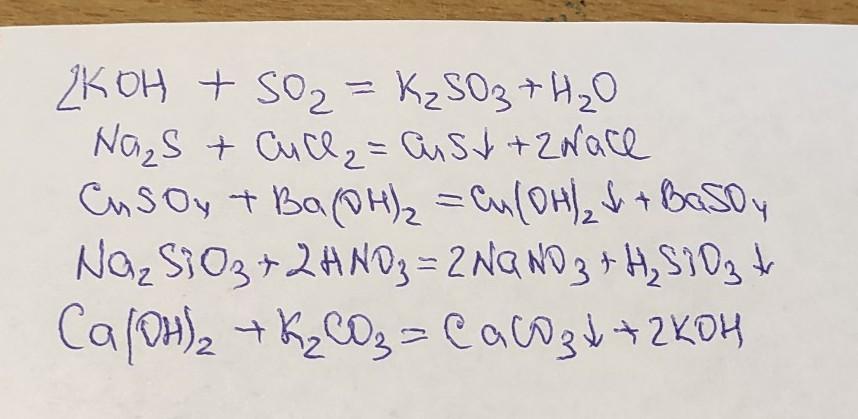 2KOH + SO₂ = K₂SO₃ + H₂O
Na₂S + CuCl₂ = CuS↓ + 2NaCl
CuSO₄ + Ba(OH)₂ = Cu(OH)₂↓ + BaSO₄
Na₂SiO₃ + 2HNO₃ = 2NaNO₃ + H₂SiO₃↓
Ca(OH)₂ + K₂CO₃ = CaCO₃↓ + 2KOH